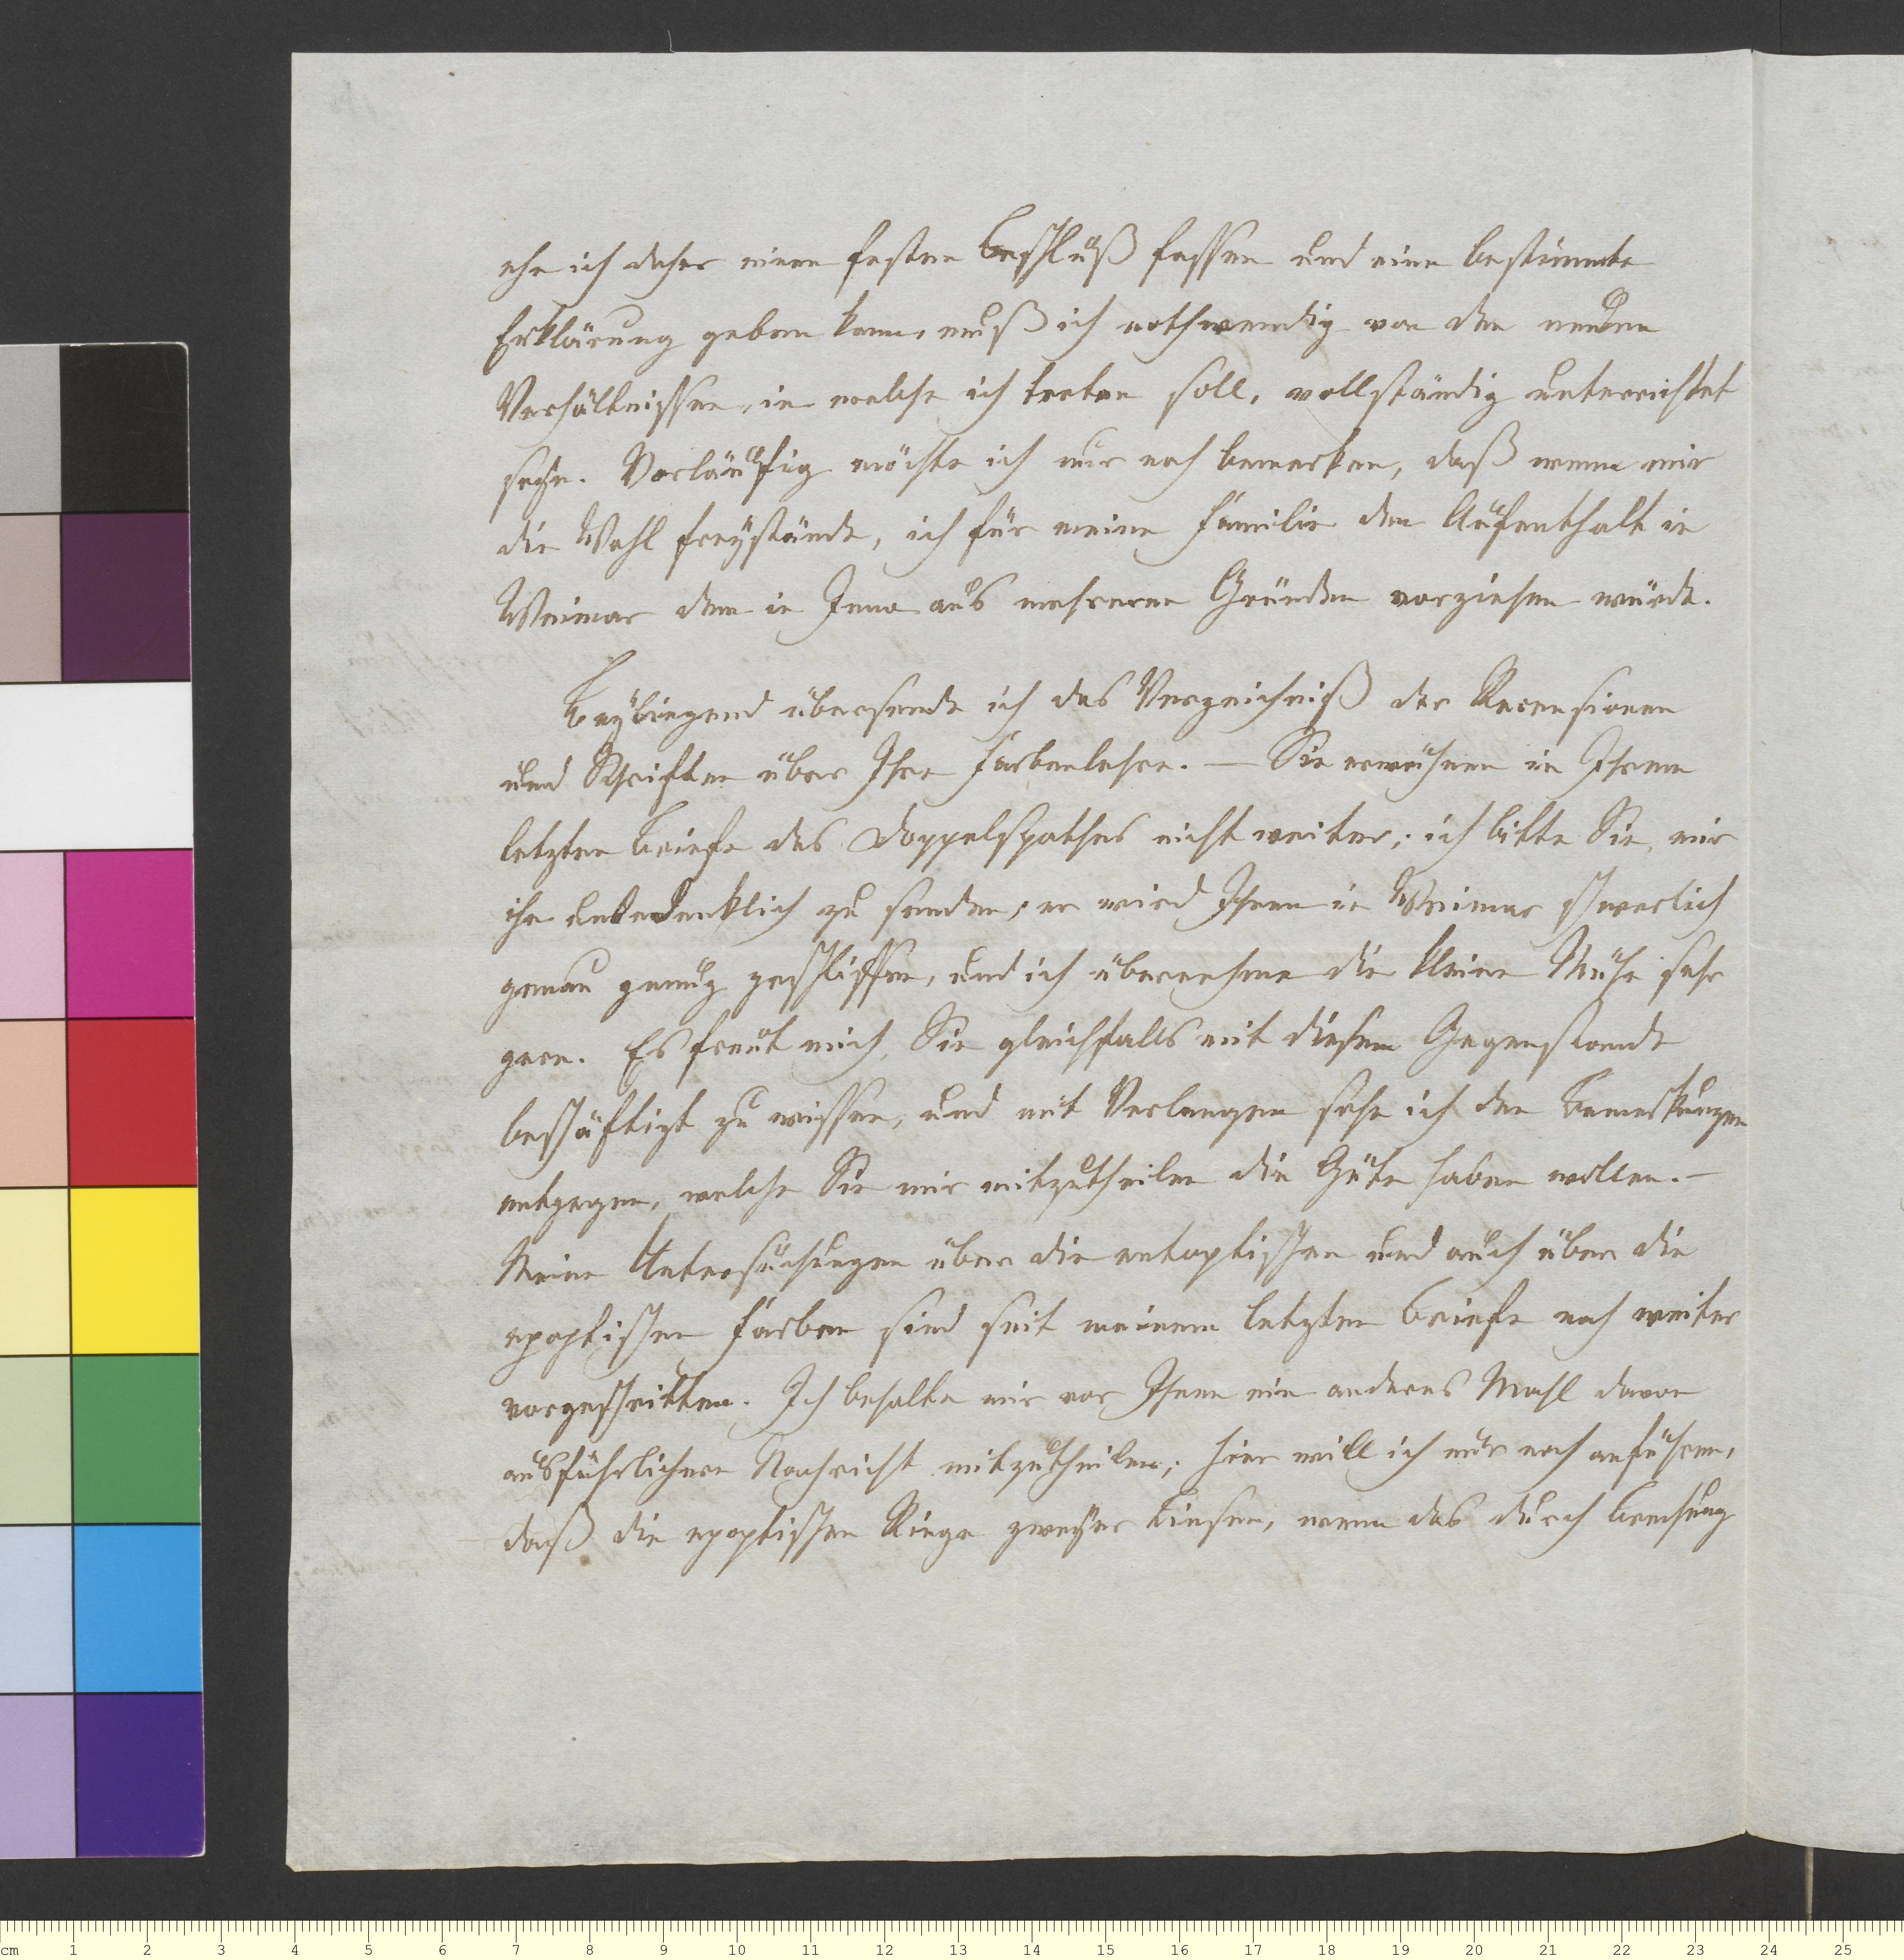 ehe ich daher einen festen Beschluß fassen und eine bestimmte
Erklärung geben kann, muß ich nothwendig von den neuen
Verhältnissen, in welche ich treten soll, vollständig unterrichtet
seyn. Vorläufig möchte ich nur noch bemerken, daß wenn mir
die Wahl freystände, ich für meine Familie den Aufenthalt in
Weimar dem in Jena aus mehreren Gründen vorziehen würde.
Beyliegend übersende ich das Verzeichniß der Recensionen
und Schriften über Ihre Farbenlehre. — Sie erwähnen in Ihrem
letzten Briefe des Doppelspathes nicht weiter; ich bitte Sie, mir
ihn unbedenklich zu senden, er wird Ihnen in Weimar schwerlich
genau genug geschliffen, und ich übernehme die kleine Mühe sehr
gern. Es freut mich, Sie gleichfalls mit diesem Gegenstande
beschäftigt zu wissen, und mit Verlangen sehe ich den Bemerkungen
entgegen, welche Sie mir mitzutheilen die Güte haben wollen. —
Meine Untersuchungen über die entoptischen und auch über die
epoptischen Farben sind seit meinem letzten Briefe noch weiter
vorgeschritten. Ich behalte mir vor, Ihnen ein anderes Mahl davon
ausführlichere Nachricht mitzutheilen; hier will ich nur noch anführen,
daß die epoptischen Ringe zweyer Linsen, wenn das durch Brechung
cm 1 2 3 4 5 6 7 8 9 10 11 12 13 14 15 16 17 18 19 20 21 22 23 24 25